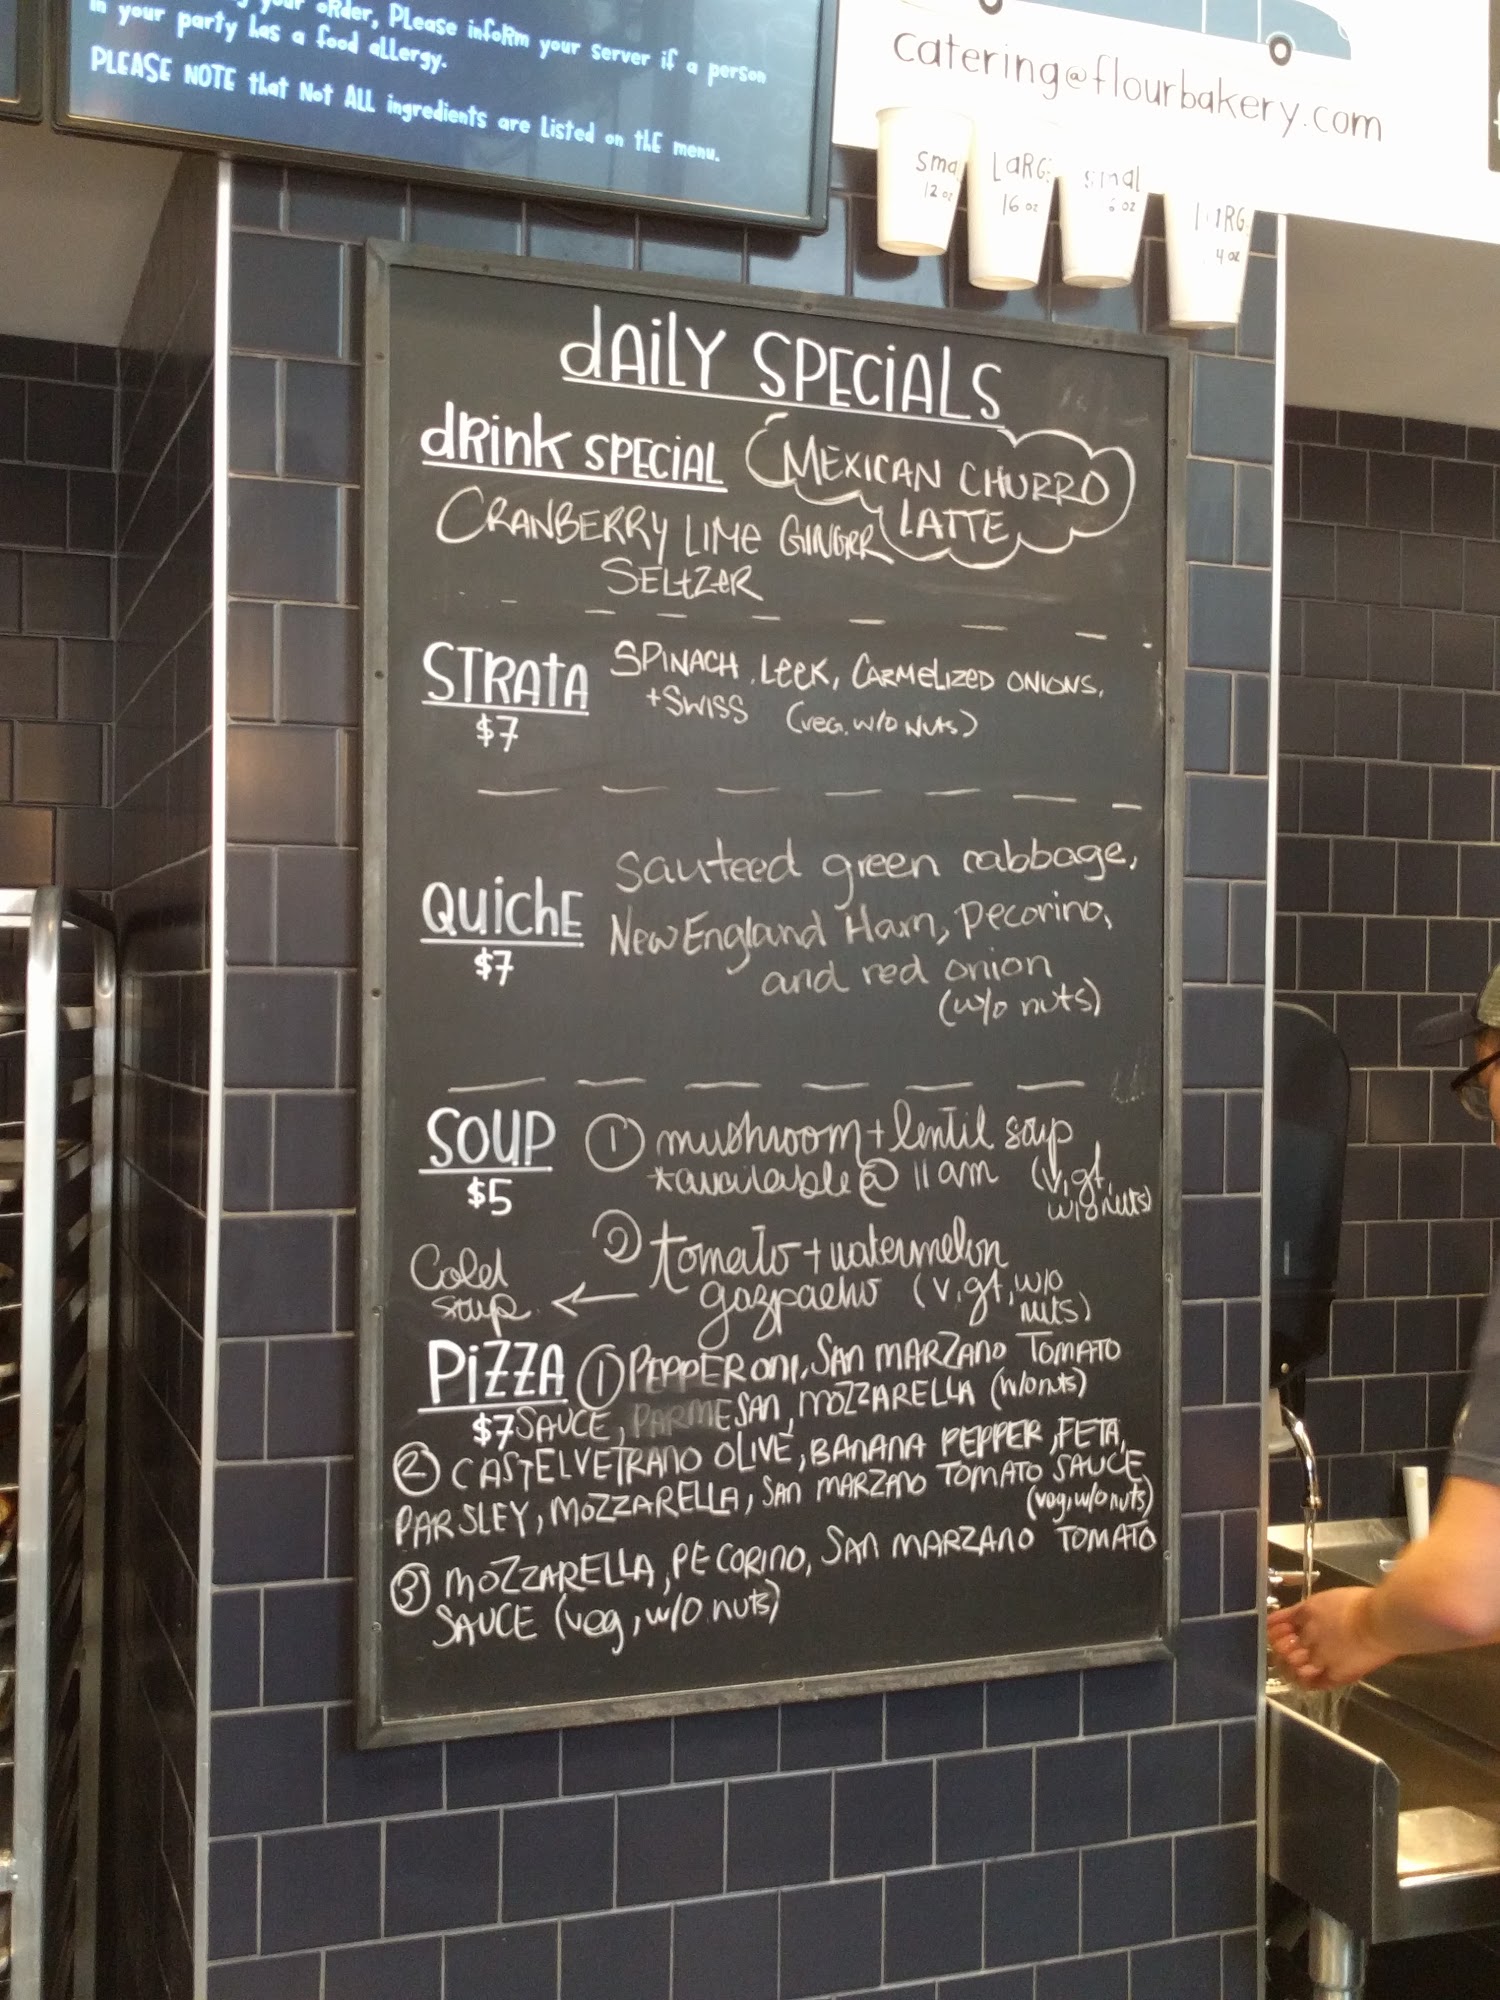 your oRder, PLease infoRm your server if a person
in your party has a food allergy.
PLEASE NOTE that Not ALL ingredients are Listed on thE menu.
catering@flourbakery.com
12 oz
LaRG
16 oz
dAiLY SPECiALS
dRink SPECiAL MEXICAN CHURRO
LATTE
CRANBERRY LIME GINGER
SELTZER
STRAtA SPINACH, LEEK, CARMELIZED ONIONS,
$7 +SWISS (veg. w/o NUTS)
QUichE Sauteed green cabbage,
$7 New England Ham, pecorino,
and red onion
(w/o nuts)
SOUP ① mushroom + lentil soup
$5 *available @ 11am (v, gf,
w/o nuts)
② tomato + watermelon
Cold soup ← gazpacho (v, gf, w/o
nuts)
PiZZA ① PEPPERONI, SAN MARZANO TOMATO
$7 SAUCE, PARMESAN, MOZZARELLA (w/o nuts)
② CASTELVETRANO OLIVE, BANANA PEPPER, FETA,
PARSLEY, MOZZARELLA, SAN MARZANO TOMATO SAUCE
(veg, w/o nuts)
③ MOZZARELLA, PECORINO, SAN MARZANO TOMATO
SAUCE (veg, w/o nuts)